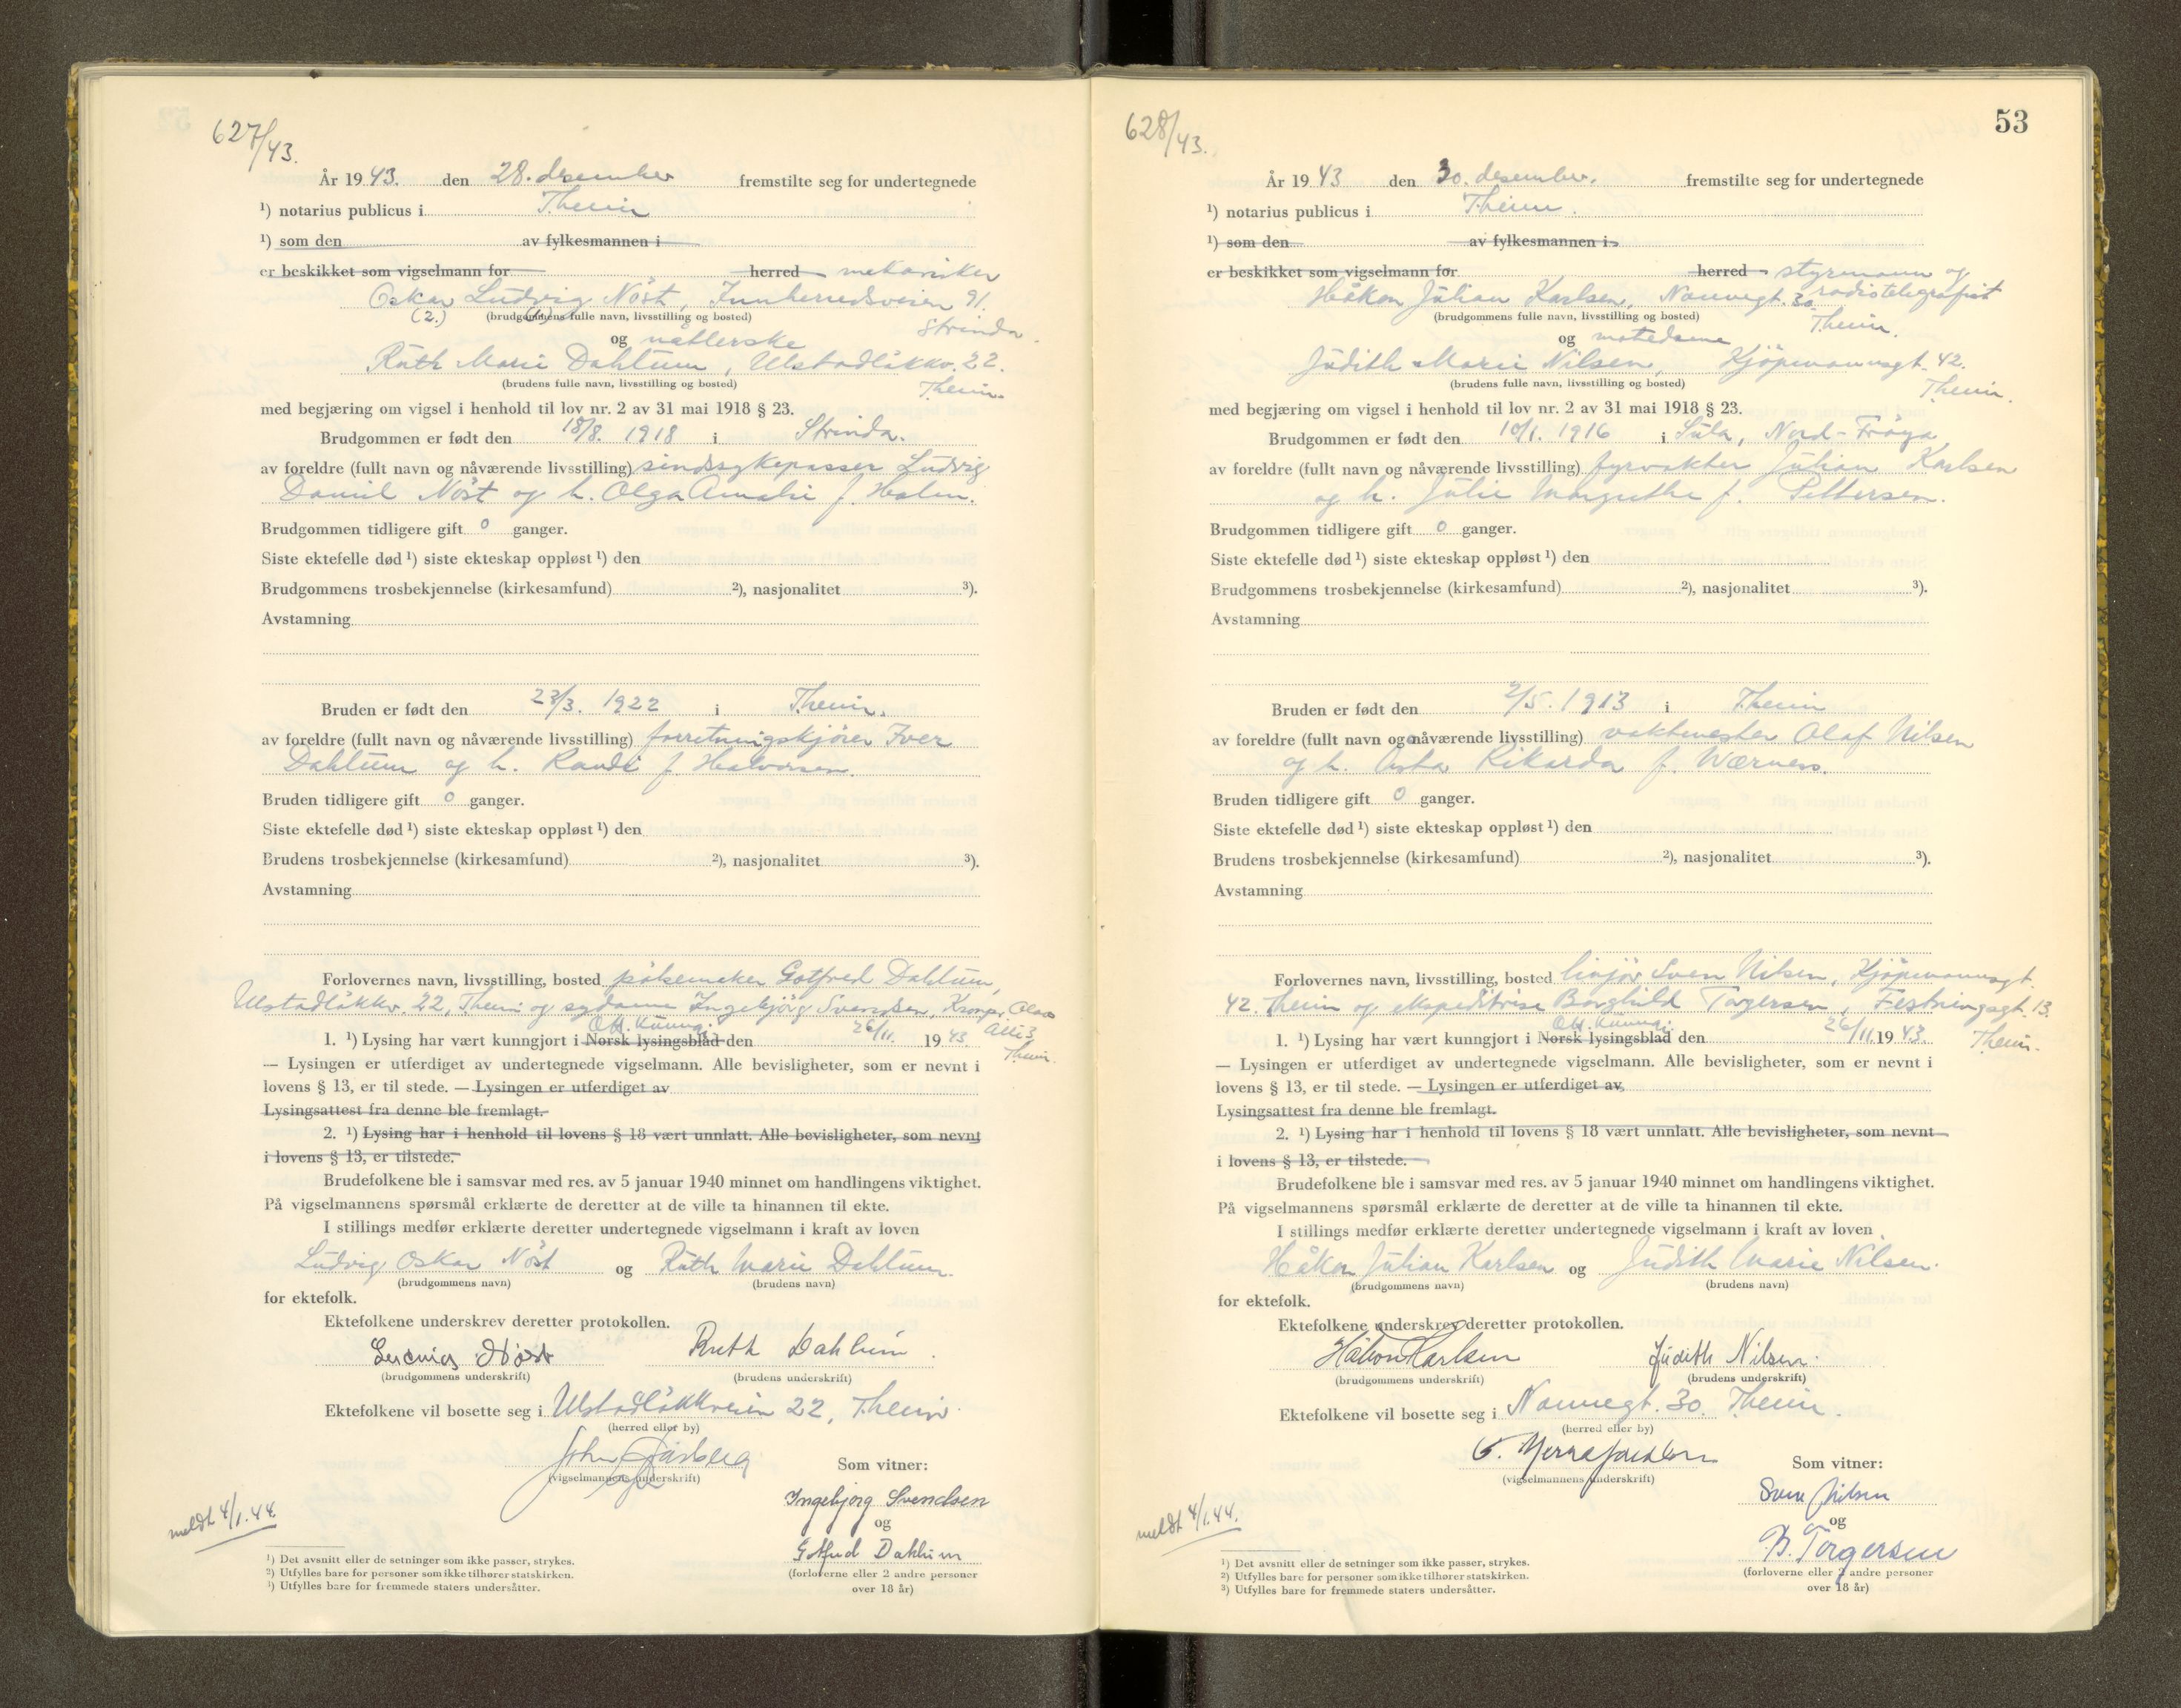 627/43.
År 1943. den 28. desember fremstilte seg for undertegnede
¹) notarius publicus i Theim
¹) som den av fylkesmannen i
er beskikket som vigselmann for herred mekaniker
Oskar Ludvig Nöst, Innherredsveien 91.
(2.) (1.) (brudgommens fulle navn, livsstilling og bosted) Strinda.
og nåtlerske
Ruth Marie Dahlum, Ulstadlåkkv. 22.
(brudens fulle navn, livsstilling og bosted) Theim.
med begjæring om vigsel i henhold til lov nr. 2 av 31 mai 1918 § 23.
Brudgommen er født den 18/8. 1918 i Strinda.
av foreldre (fullt navn og nåværende livsstilling) sindssykepasser Ludvig
Daniel Nöst og h. Olga Amalie f. Holm.
Brudgommen tidligere gift 0 ganger.
Siste ektefelle død ¹) siste ekteskap oppløst ¹) den
Brudgommens trosbekjennelse (kirkesamfund) ²), nasjonalitet ³).
Avstamning
Bruden er født den 23/3. 1922 i Theim.
av foreldre (fullt navn og nåværende livsstilling) forretningskjörer Iver
Dahlum og h. Randi f. Halvorsen.
Bruden tidligere gift 0 ganger.
Siste ektefelle død ¹) siste ekteskap oppløst ¹) den
Brudens trosbekjennelse (kirkesamfund) ²), nasjonalitet ³).
Avstamning
Forlovernes navn, livsstilling, bosted pölsemaker Gotfred Dahlum,
Ulstadlåkkv. 22, Theim og sydame Ingebjörg Svendsen, Kronpr. Olavs
Off. kunngj. alle 3
1. ¹) Lysing har vært kunngjort i Norsk lysingsblad den 26/11. 1943. Theim.
— Lysingen er utferdiget av undertegnede vigselmann. Alle bevisligheter, som er nevnt i
lovens § 13, er til stede. — Lysingen er utferdiget av
Lysingsattest fra denne ble fremlagt.
2. ¹) Lysing har i henhold til lovens § 18 vært unnlatt. Alle bevisligheter, som nevnt
i lovens § 13, er tilstede.
Brudefolkene ble i samsvar med res. av 5 januar 1940 minnet om handlingens viktighet.
På vigselmannens spørsmål erklærte de deretter at de ville ta hinannen til ekte.
I stillings medfør erklærte deretter undertegnede vigselmann i kraft av loven
Ludvig Oskar Nöst og Ruth Marie Dahlum.
(brudgommens navn) (brudens navn)
for ektefolk.
Ektefolkene underskrev deretter protokollen.
Ludvig Nöst Ruth Dahlum.
(brudgommens underskrift) (brudens underskrift)
Ektefolkene vil bosette seg i Ulstadlåkkveien 22, Theim.
(herred eller by)
John
(vigselmannens underskrift) Som vitner:
Ingebjorg Svendsen
og
meldt 4/1.44. Gotfred Dahlum
(forloverne eller 2 andre personer
over 18 år)
¹) Det avsnitt eller de setninger som ikke passer, strykes.
²) Utfylles bare for personer som ikke tilhører statskirken.
³) Utfylles bare for fremmede staters undersåtter.
53
628/43.
År 1943 den 30. desember. fremstilte seg for undertegnede
¹) notarius publicus i Theim.
¹) som den av fylkesmannen i
er beskikket som vigselmann for herred styrmann og
Håkon Julian Karlsen, Nonnegt. 30. radiotelegrafist
(brudgommens fulle navn, livsstilling og bosted) Theim.
og motedame
Judith Marie Nilsen, Kjöpmannsgt. 42.
(brudens fulle navn, livsstilling og bosted) Theim.
med begjæring om vigsel i henhold til lov nr. 2 av 31 mai 1918 § 23.
Brudgommen er født den 10/1. 1916 i Sula, Nord-Fröya
av foreldre (fullt navn og nåværende livsstilling) fyrvokter Julian Karlsen
og h. Julie Margrethe f. Pettersen.
Brudgommen tidligere gift 0 ganger.
Siste ektefelle død ¹) siste ekteskap oppløst ¹) den
Brudgommens trosbekjennelse (kirkesamfund) ²), nasjonalitet ³).
Avstamning
Bruden er født den 2/5. 1913 i Theim
av foreldre (fullt navn og nåværende livsstilling) vaktmester Olaf Nilsen
og h. Asta Rikarda f. Wærness.
Bruden tidligere gift 0 ganger.
Siste ektefelle død ¹) siste ekteskap oppløst ¹) den
Brudens trosbekjennelse (kirkesamfund) ²), nasjonalitet ³).
Avstamning
Forlovernes navn, livsstilling, bosted linjör Sven Nilsen, Kjöpmannsgt.
42. Theim og ekspeditrise Borghild Torgersen, Festningsgt. 13.
Off. kunngj.
1. ¹) Lysing har vært kunngjort i Norsk lysingsblad den 26/11. 1943. Theim.
— Lysingen er utferdiget av undertegnede vigselmann. Alle bevisligheter, som er nevnt i
lovens § 13, er til stede. — Lysingen er utferdiget av
Lysingsattest fra denne ble fremlagt.
2. ¹) Lysing har i henhold til lovens § 18 vært unnlatt. Alle bevisligheter, som nevnt
i lovens § 13, er tilstede.
Brudefolkene ble i samsvar med res. av 5 januar 1940 minnet om handlingens viktighet.
På vigselmannens spørsmål erklærte de deretter at de ville ta hinannen til ekte.
I stillings medfør erklærte deretter undertegnede vigselmann i kraft av loven
Håkon Julian Karlsen og Judith Marie Nilsen.
(brudgommens navn) (brudens navn)
for ektefolk.
Ektefolkene underskrev deretter protokollen.
Håkon Karlsen Judith Nilsen.
(brudgommens underskrift) (brudens underskrift)
Ektefolkene vil bosette seg i Nonnegt. 30. Theim.
(herred eller by)
(vigselmannens underskrift) Som vitner:
Sven Nilsen
og
meldt 4/1.44. B. Torgersen
(forloverne eller 2 andre personer
over 18 år)
¹) Det avsnitt eller de setninger som ikke passer, strykes.
²) Utfylles bare for personer som ikke tilhører statskirken.
³) Utfylles bare for fremmede staters undersåtter.